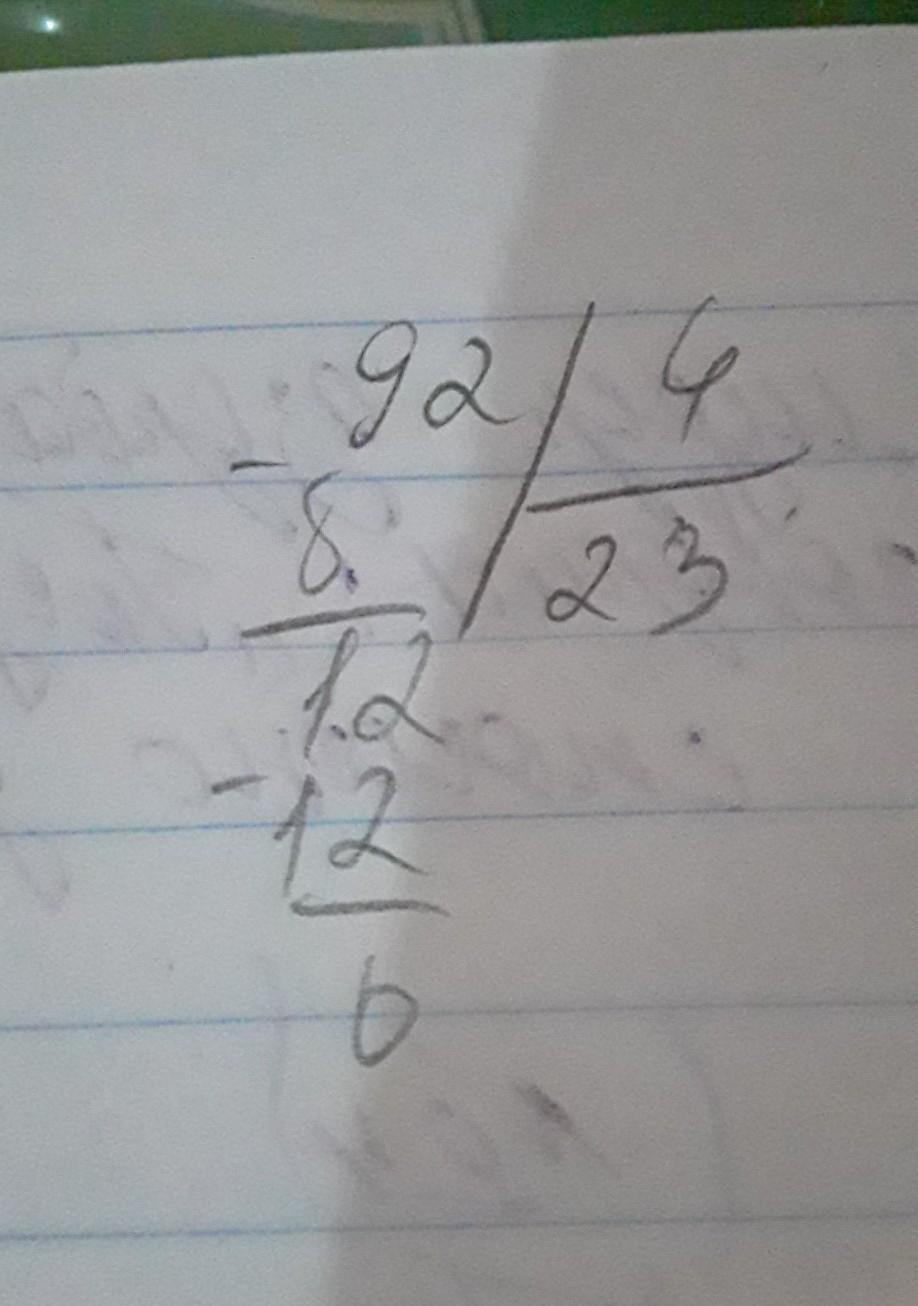 92 4
- 8
23
12
- 12
0